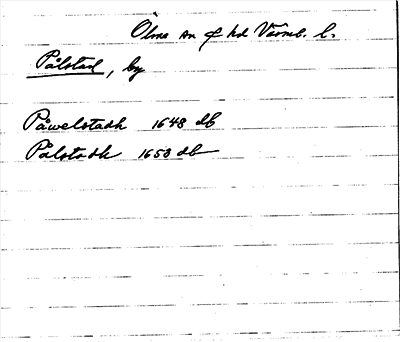 Ölme sn & hd Värml. l.
Pålstad, by
Påwelstadh 1648 db
Pålstadh 1658 db